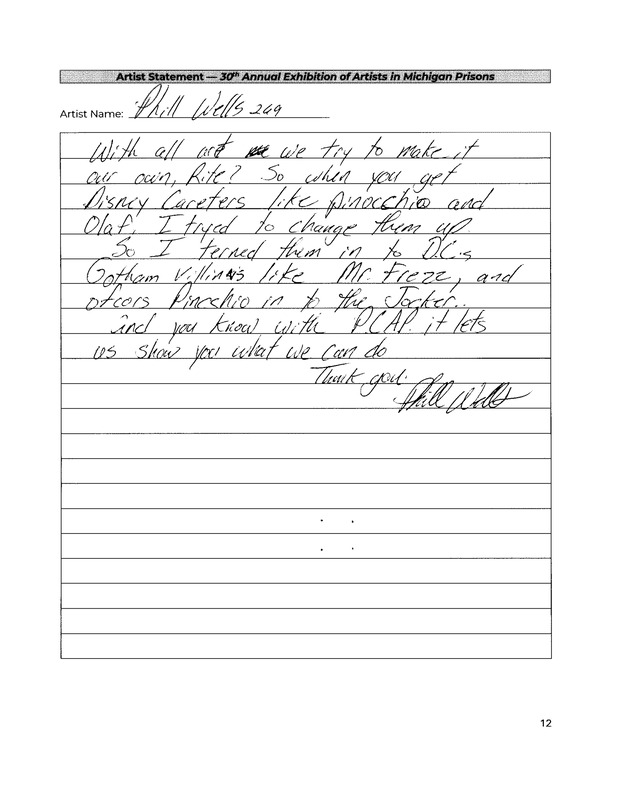 Artist Statement — 30th Annual Exhibition of Artists in Michigan Prisons
Artist Name: Phill Wells 249
With all art we try to make it
our own, Rite? So when you get
Disney Careters like pinocchio and
Olaf, I tryed to change them up.
So I terned them in to D.C.s
Gotham Villins like Mr. Frezz, and
ofcors Pinochio in to the Jocker..
and you know with PCAP. it lets
us show you what we can do
Thank you.
Phill Wells
12